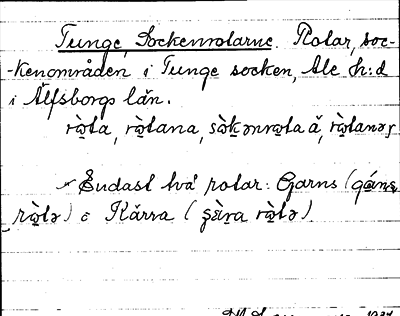 Tunge, Sockenrotarne. Rotar, soc-
-kenområden i Tunge socken, Ale h:d
i Älfsborgs län.
rò̱ta, rò̱tana, sò̱kənro̱ta ǎ, rò̱tanəs
Endast två rotar: Garns (gáns
rò̱tə) o Kärra (
rò̱tə).